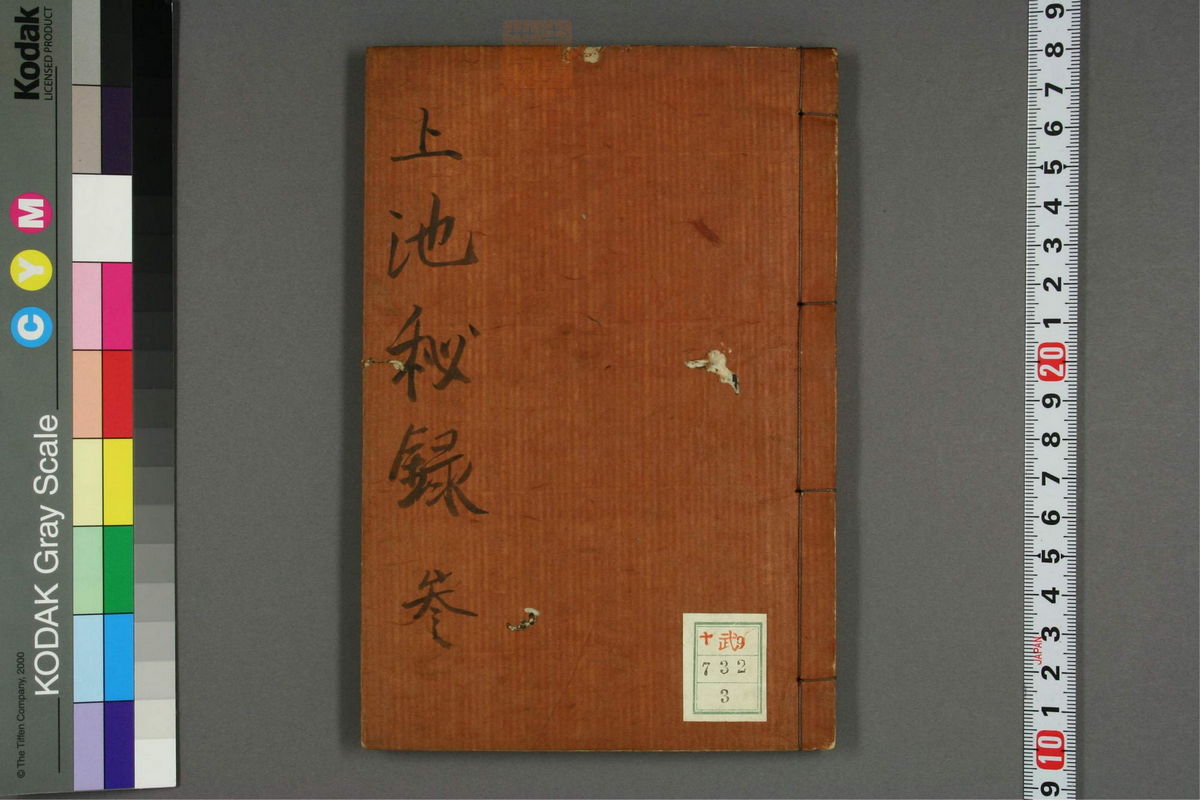 上池秘録 参
十 武9
732
3
Kodak
LICENSED PRODUCT
KODAK Gray Scale
C Y M
© The Tiffen Company, 2000
9
8
7
6
5
4
3
2
1
20
9
8
7
6
5
4
3
2
1
10
9
JAPAN